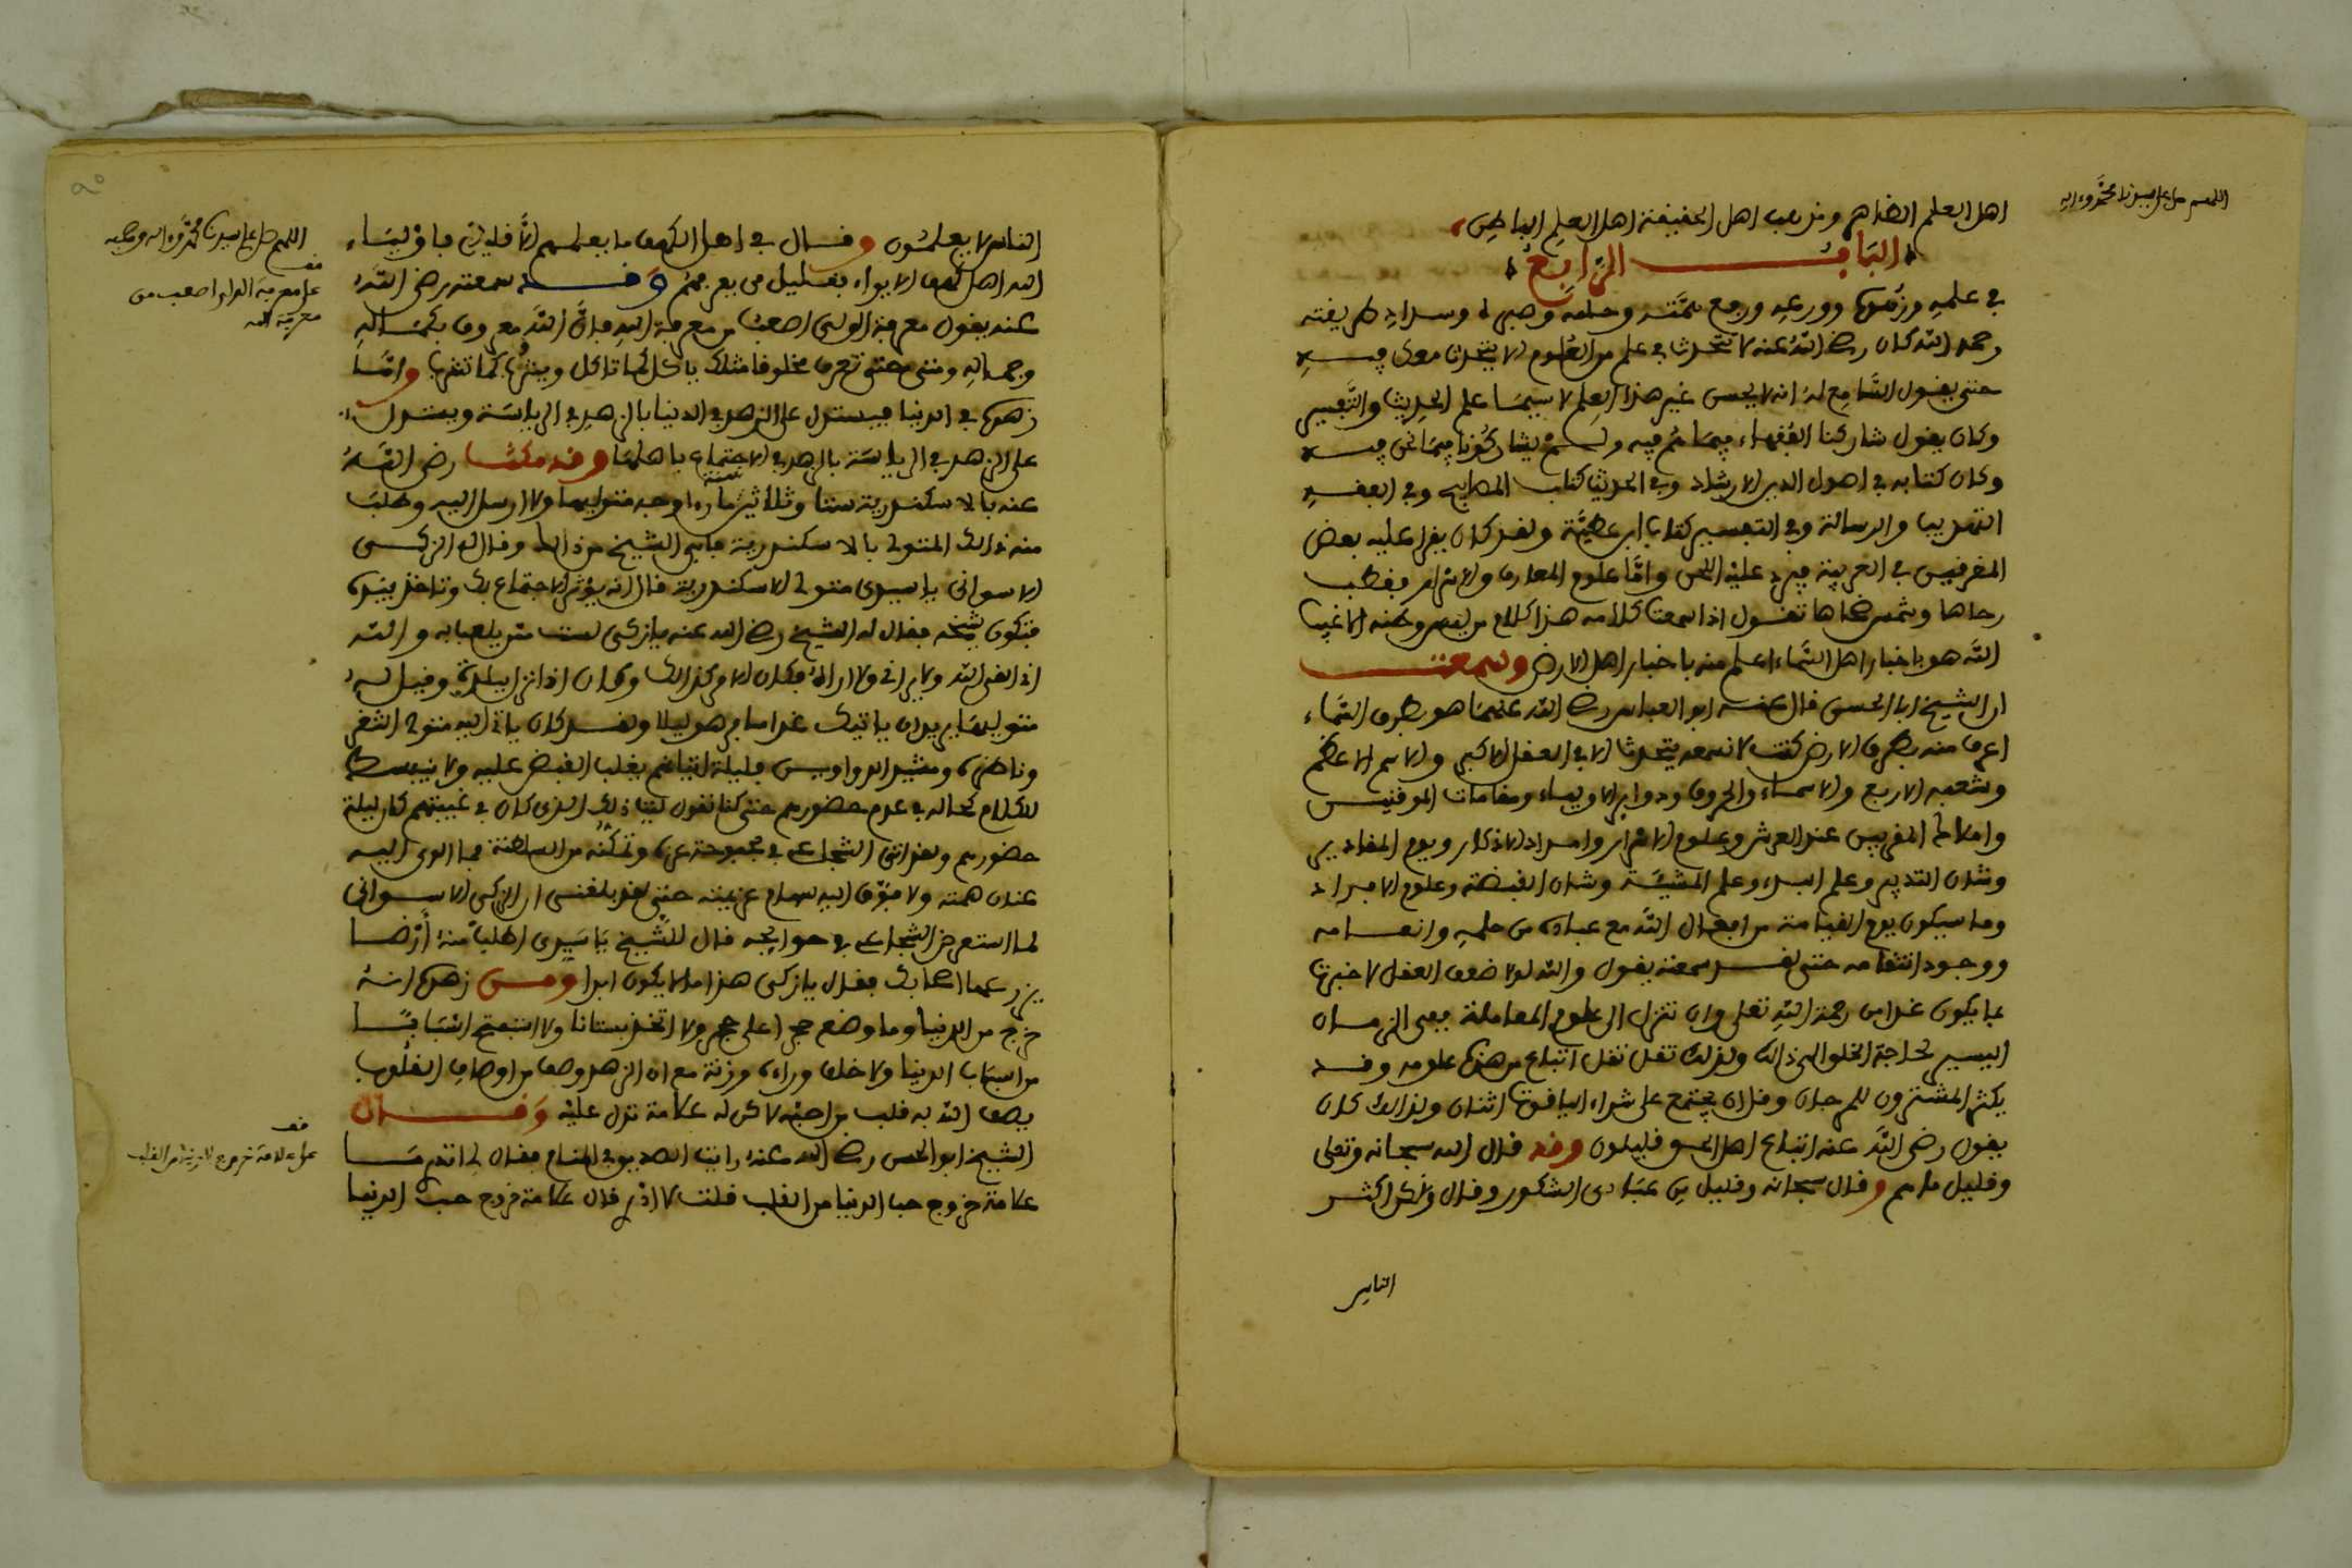 اللهم صل على سيدنا محمد وءاله
اهل العلم الظاهر ومذهب اهل الحقيقة اهل العلم الباطن
الباب الرابع
في علمه وزهده وورعه ورفع همته وحلمه وصبره وسداد طريقته
رحمه الله كان رضي الله عنه لا تتحدث في علم من العلوم الا يتحدث معك فيه
حتى يقول السامع له انه لا يحسن غير هذا العلم لا سيما علم الحديث والتفسير
وكان يقول شاركنا الفقهاء فيما هم فيه ولم يشاركونا فيما نحن فيه
وكان كتابه في اصول الدين الارشاد وفي الحديث كتاب المصابيح وفي الفقه
التهذيب والرسالة وفي التفسير كتاب ابن عطية ولقد كان يقرا عليه بعض
المقرئين في العربية فيرد عليه اللحن واما علوم المعارف والاسرار فقطب
رحاها وشمس ضحاها تقول اذا سمعت كلامه هذا كلام من ليس وطنه الا غيب
الله هو باخبار اهل السماء اعلم منه باخبار اهل الارض وسمعت
ان الشيخ ابا الحسن قال عنه ابو العباس رضي الله عنهما هو بطرق السماء
اعرف منه بطرق الارض كنت لا تسمعه يتحدث الا في العقل الاكبر والاسم الاعظم
وشعبه الاربع والاسماء والحروف ودوائر الاولياء ومقامات الموقنين
واملاك المقربين عند العرش وعلوم الاسرار وامداد الاذكار ويوم المقادير
وشان التدبير وعلم البدء وعلم المشيئة وشان القبضة وعلوم الافراد
وما سيكون يوم القيامة من افعال الله مع عباده من حلمه وانعامه
ووجود انتقامه حتى لقد سمعته يقول والله لولا ضعف العقل لاخبرت
بما يكون غدا من رحمة الله تعلى وان تنزل الى علوم المعاملة ففي الزمان
اليسير لحاجة الخلو الى ذالك ولذلك تقل تقل اتباع من هذه علومه وقد
يكثر المشترون للمرجان وقل ان يجتمع على شراء الياقوت اثنان ولذالك كان
يقول رضي الله عنه اتباع اهل الحق قليلون وقد قال الله سبحانه وتعلى
وقليل ما هم وقال سبحانه وقليل من عبادي الشكور وقال ولكن اكثر
الناس
اللهم صل على سيدنا محمد وءاله وصحبه
الناس لا يعلمون وقال في اهل الكهف ما يعلمهم الا قليل فاولياء
الله اهل كهف الايواء فقليل من يعرفهم وقد سمعته رضي الله
عنه يقول معرفة الولي اصعب من معرفة الله فان الله معروف بكماله
وجماله ومتى حتى تعرف مخلوقا مثلك ياكل كما تاكل ويشرب كما تشرب واما
زهده في الدنيا فيستدل على الزهد في الدنيا بالزهد في الرياسة ويستدل
على الزهد في الرياسة بالزهد في الاجتماع باهلها وقد مكث رضي الله
عنه بالاسكندرية ستا وثلاثين سنة ما راى وجه متوليها ولا ارسل اليه وطلب
منه ذالك المتولى بالاسكندرية فابى الشيخ من ذالك وقال له الزكي
الاسواني يا سيدي متولى الاسكندرية قال انه يؤثر الاجتماع بك وتاخذ بيده
فتكون شيخه فقال له الشيخ رضي الله عنه يا زكي لست ممن يلعب به والله
اني القى الله ولا يراني ولا اراه فكان الامر كذالك وكان اذا نزل ببلدة وقيل له
متوليها يريد ان ياتيك غدا سافر هو ليلا ولقد كان ياتي اليه متولى الثغر
وناظره ومشيد الدواوين فليلة اتيانهم يغلب القبض عليه ولا ينبسط
للكلام كحاله في عدم حضورهم حتى كنا نقول ليت ذلك الذي كان في غيبتهم كان ليلة
حضورهم ولقد اتى الشجاعي في بحبوحة عزه وتمكنه من السلطنة فما الوى اليه
عنان همته ولا فوق اليه سهام عزيمته حتى لقد بلغني ان الزكي الاسواني
لما استعرض الشجاعي في حوايجه قال للشيخ يا سيدي اطلب منه ارضا
يزرعها اصحابك فقال يا زكي هذا ما لا يكون ابدا ومن زهده انه
خرج من الدنيا وما وضع حجرا على حجر ولا اتخذ بستانا ولا استفتح اسبابا
من اسباب الدنيا ولا خلف وراءه ورثة مع ان الزهد وصف من اوصاف القلوب
يصف الله به قلب من احبه لاكن له علامة تدل عليه وقال
الشيخ ابو الحسن رضي الله عنه رايت الصديق في المنام فقال لي اتدري ما
علامة خروج حب الدنيا من القلب قلت لا ادري قال علامة خروج حب الدنيا
قف
على معرفة الولي اصعب من
معرفة الله
قف
على علامة خروج الدنيا من القلب